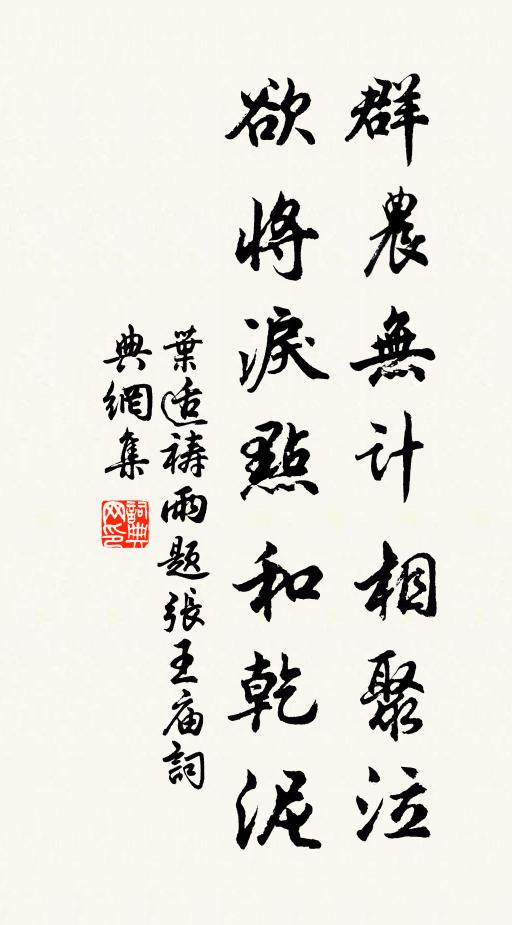 群農無計相聚泣
欲將淚點和乾泥
葉适禱雨題張王庙詞
典網集
詞典
网印